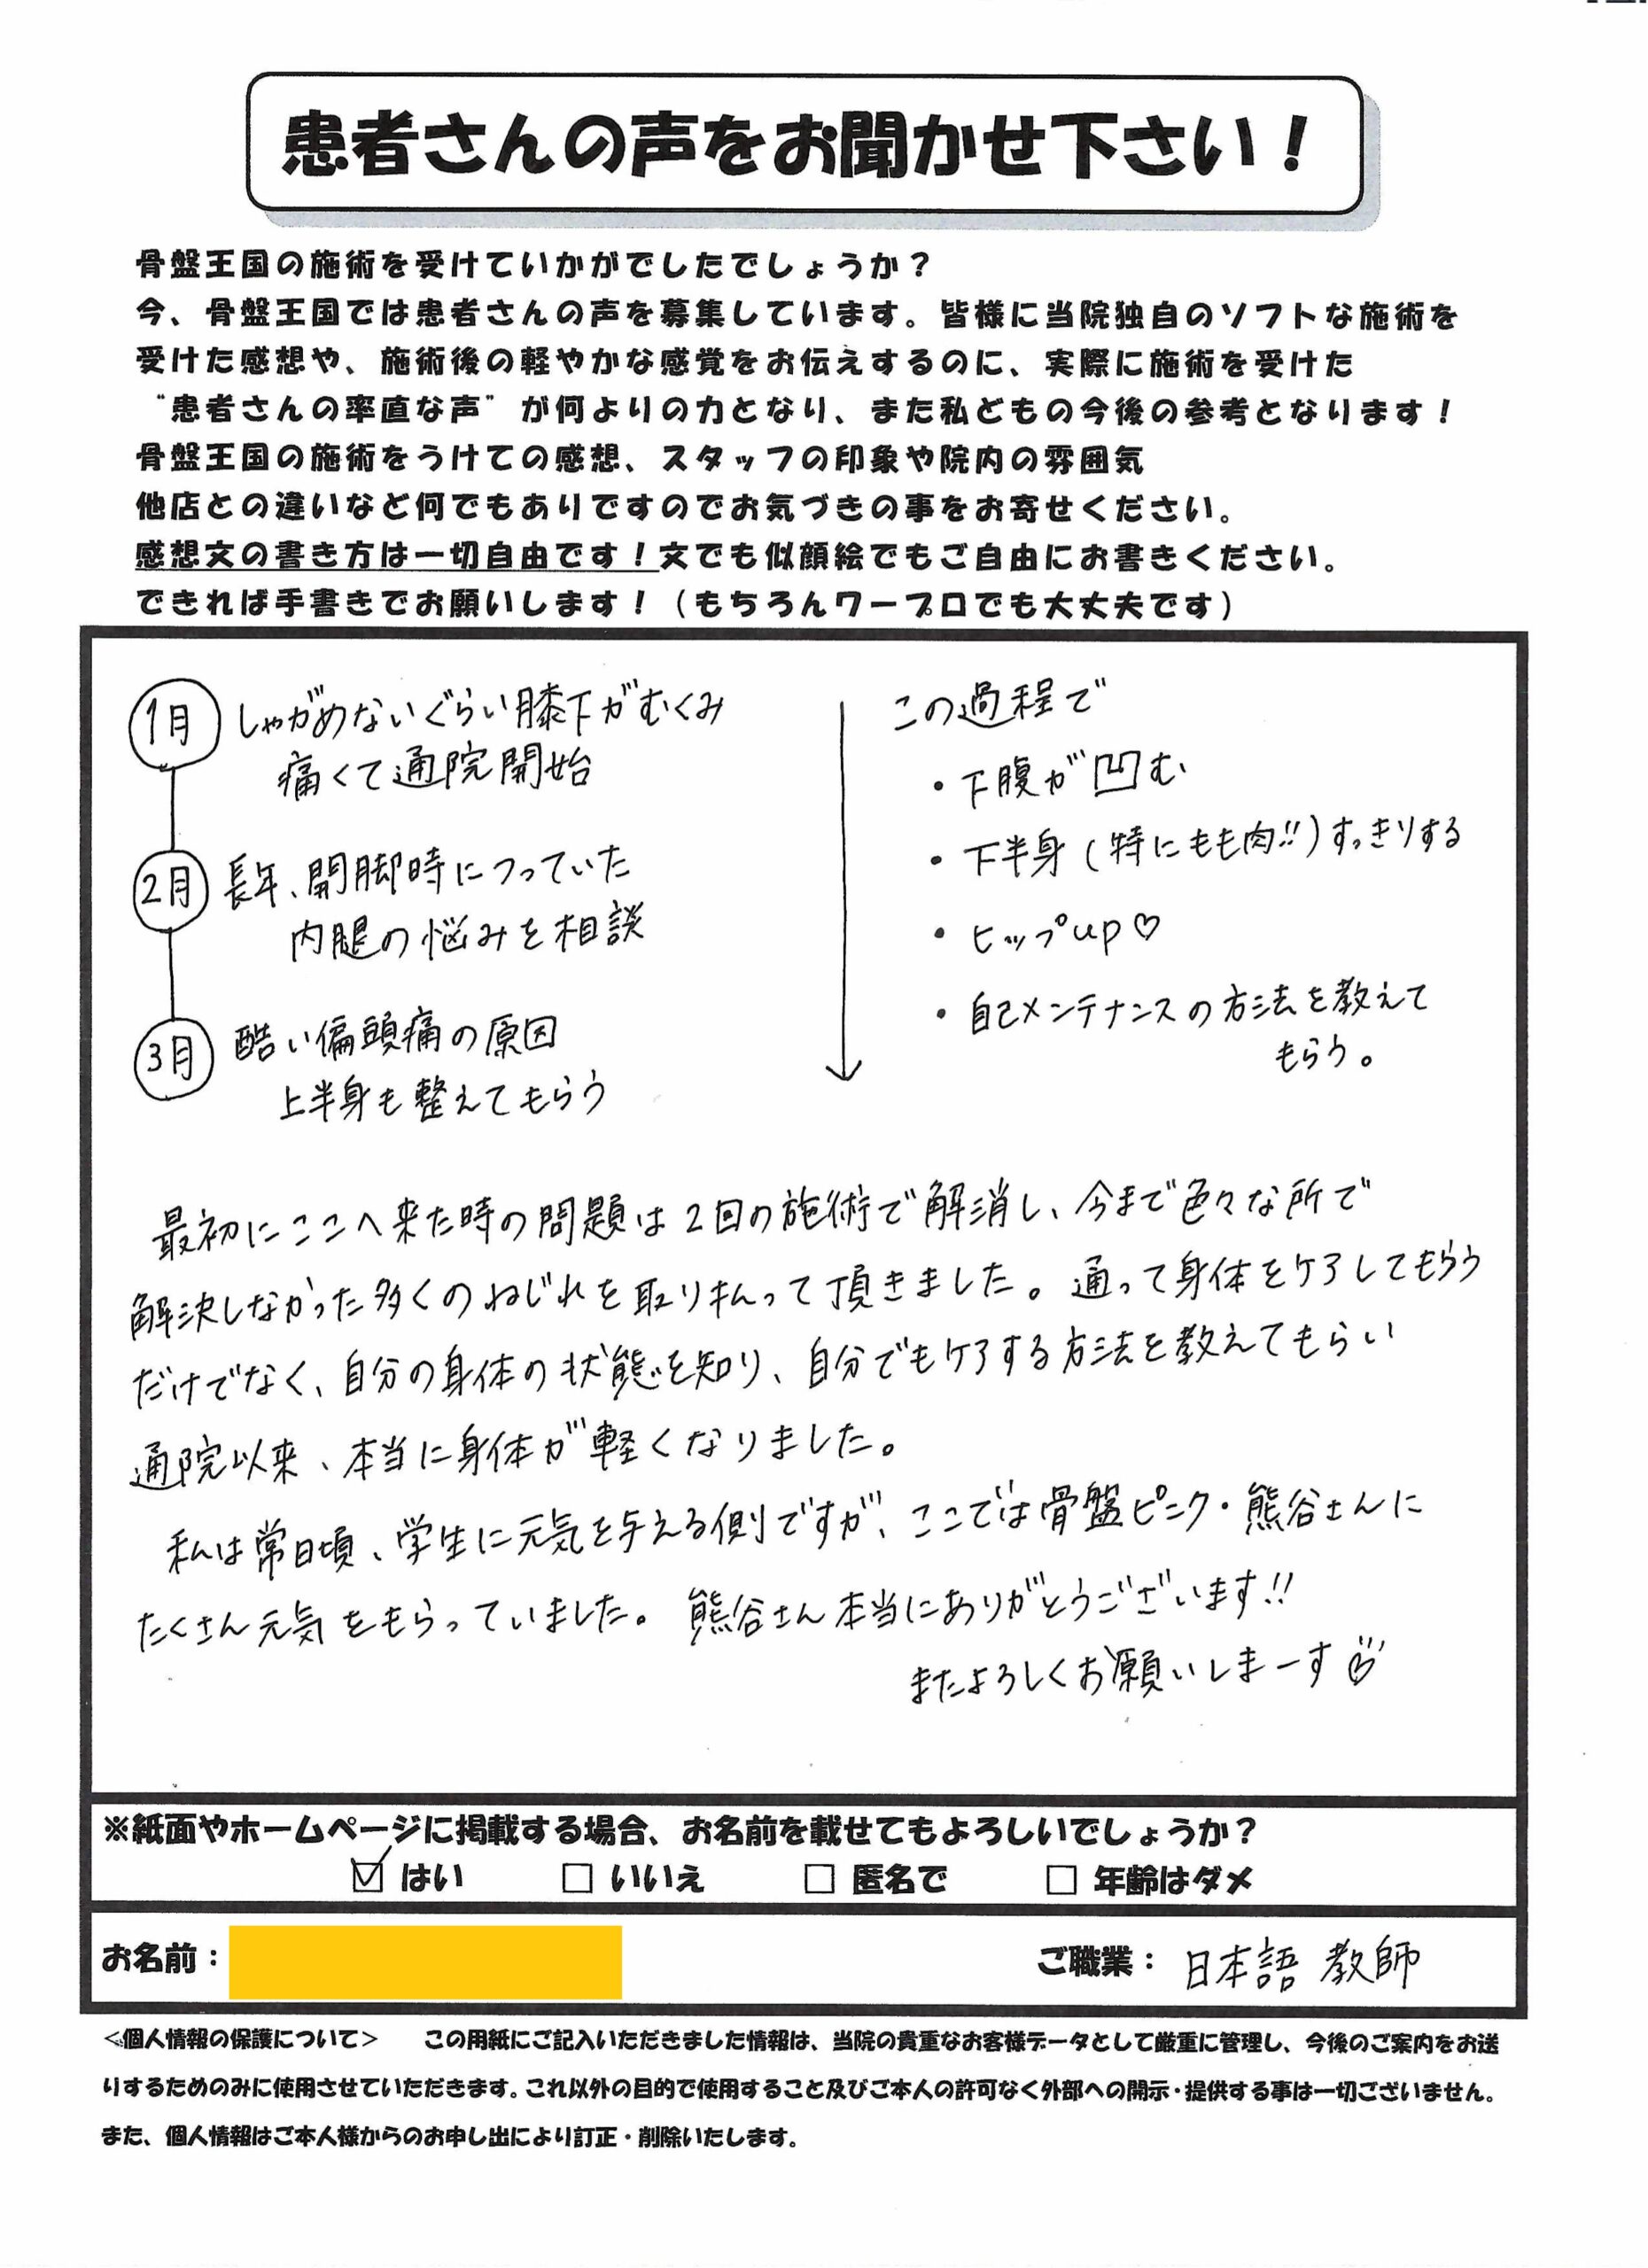 患者さんの声をお聞かせ下さい！
骨盤王国の施術を受けていかがでしたでしょうか？
今、骨盤王国では患者さんの声を募集しています。皆様に当院独自のソフトな施術を
受けた感想や、施術後の軽やかな感覚をお伝えするのに、実際に施術を受けた
“患者さんの率直な声”が何よりの力となり、また私どもの今後の参考となります！
骨盤王国の施術をうけての感想、スタッフの印象や院内の雰囲気
他店との違いなど何でもありですのでお気づきの事をお寄せください。
感想文の書き方は一切自由です！文でも似顔絵でもご自由にお書きください。
できれば手書きでお願いします！（もちろんワープロでも大丈夫です）
1月 しゃがめないぐらい膝下がむくみ
痛くて通院開始
2月 長年、開脚時につっていた
内腿の悩みを相談
3月 酷い偏頭痛の原因
上半身も整えてもらう
この過程で
・下腹が凹む
・下半身（特にもも肉!!）すっきりする
・ヒップup♡
・自己メンテナンスの方法を教えて
もらう。
最初にここへ来た時の問題は2回の施術で解消し、今まで色々な所で
解決しなかった多くのねじれを取り払って頂きました。通って身体をケアしてもらう
だけでなく、自分の身体の状態を知り、自分でもケアする方法を教えてもらい
通院以来、本当に身体が軽くなりました。
私は常日頃、学生に元気を与える側ですが、ここでは骨盤ピンク・熊谷さんに
たくさん元気をもらっていました。熊谷さん本当にありがとうございます!!
またよろしくお願いしまーす
※紙面やホームページに掲載する場合、お名前を載せてもよろしいでしょうか？
☑ はい □ いいえ □ 匿名で □ 年齢はダメ
お名前： ご職業：日本語 教師
＜個人情報の保護について＞ この用紙にご記入いただきました情報は、当院の貴重なお客様データとして厳重に管理し、今後のご案内をお送
りするためのみに使用させていただきます。これ以外の目的で使用すること及びご本人の許可なく外部への開示・提供する事は一切ございません。
また、個人情報はご本人様からのお申し出により訂正・削除いたします。